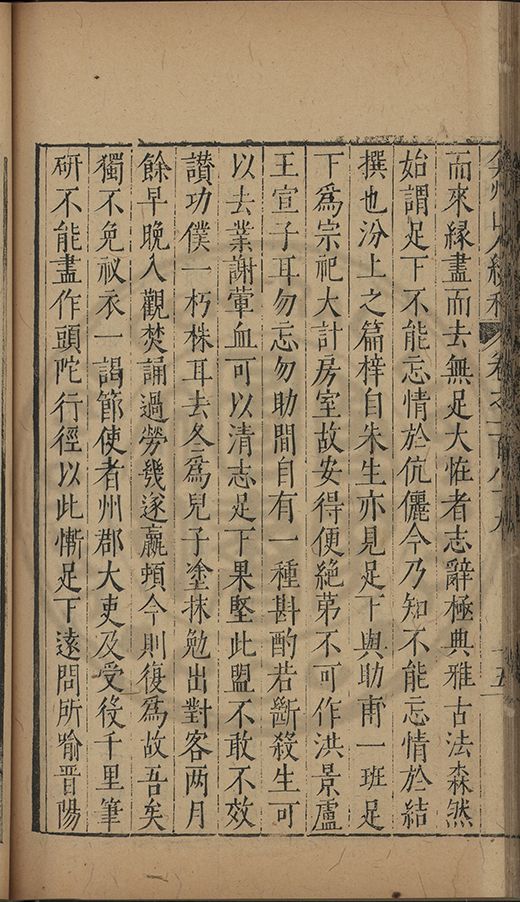 弇州山人續稿 卷之一百八十九 十五
而來緣盡而去無足大恠者志辭極典雅古法森然
始謂足下不能忘情於伉儷今乃知不能忘情於結
撰也汾上之篇梓自朱生亦見足下與助甫一班足
下爲宗祀大計房室故安得便絶苐不可作洪景盧
王宣子耳勿忘勿助間自有一種斟酌若斷殺生可
以去業謝葷血可以清志足下果堅此盟不敢不效
讃功僕一朽株耳去冬爲兒子塗抹勉出對客两月
餘早晚入觀焚誦過勞幾逐羸頓今則復爲故吾矣
獨不免衩衣一謁節使者州郡大吏及受役千里筆
研不能盡作頭陀行徑以此慚足下逺問所喻晋陽